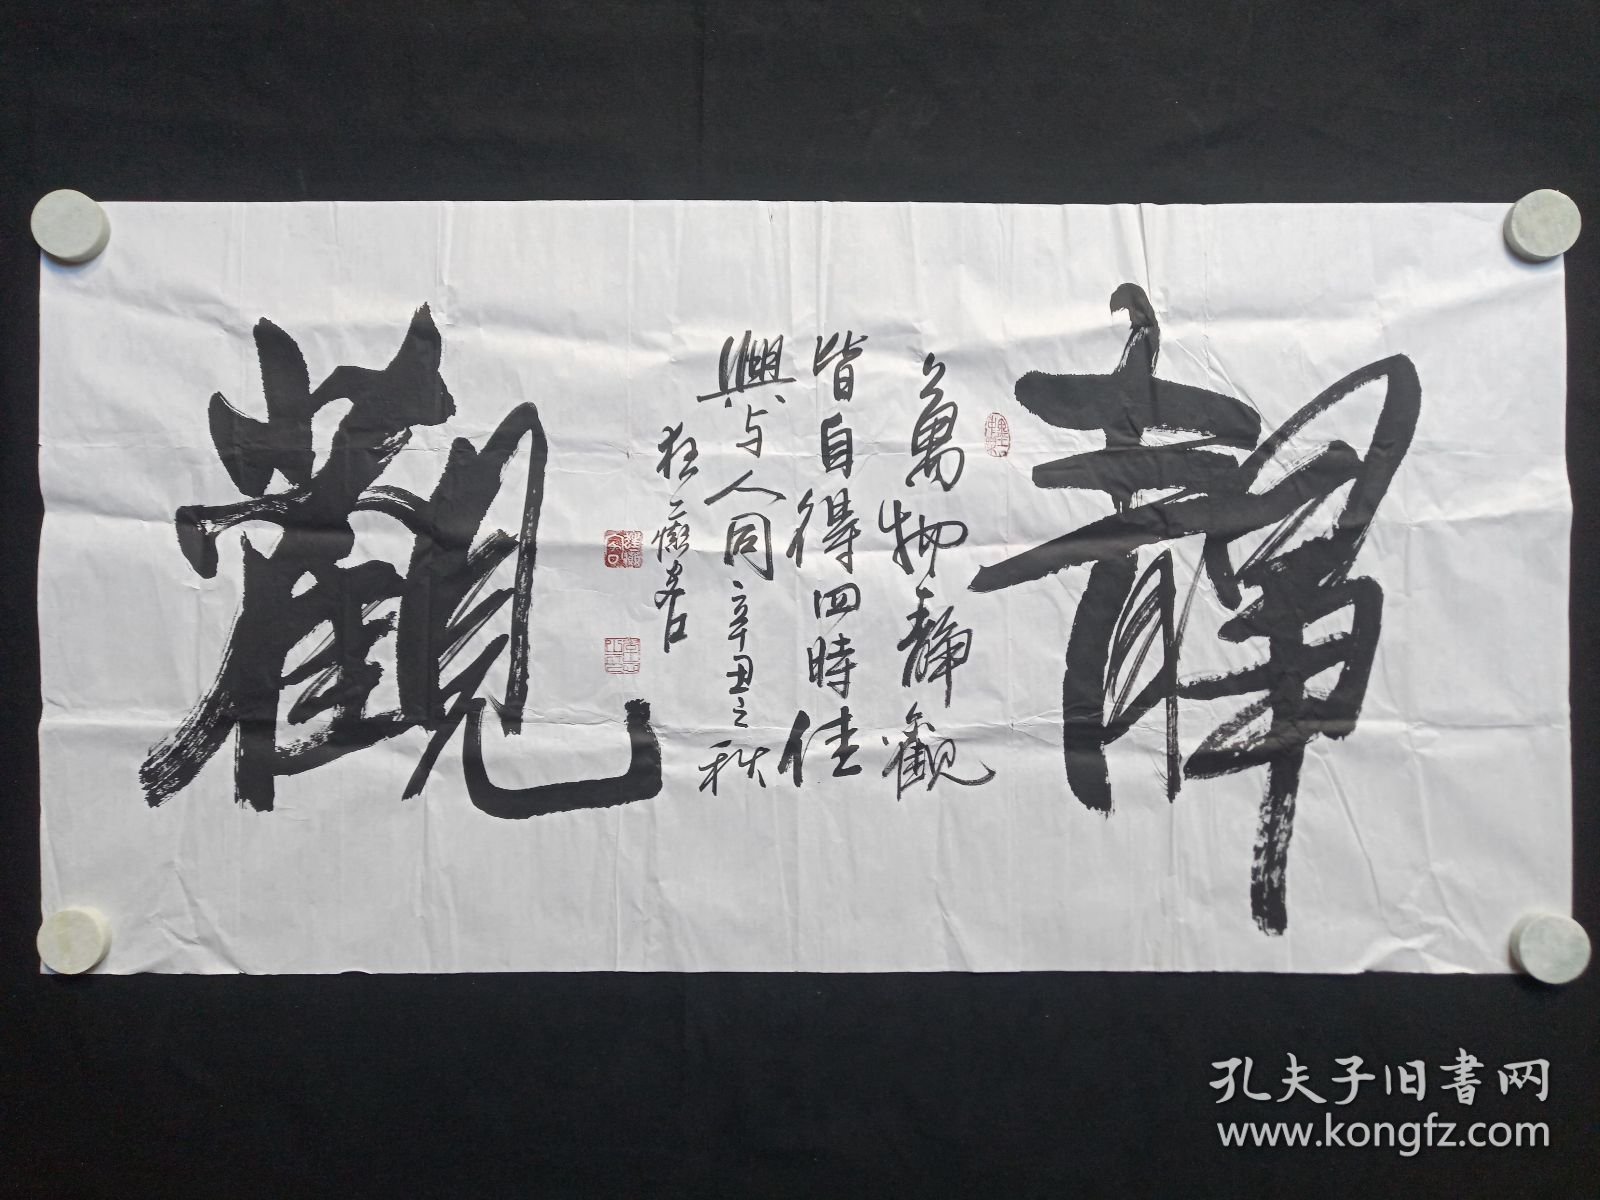 靜
萬物靜觀
皆自得四時佳
興与人同辛丑之秋
觀
孔夫子旧书网
www.kongfz.com